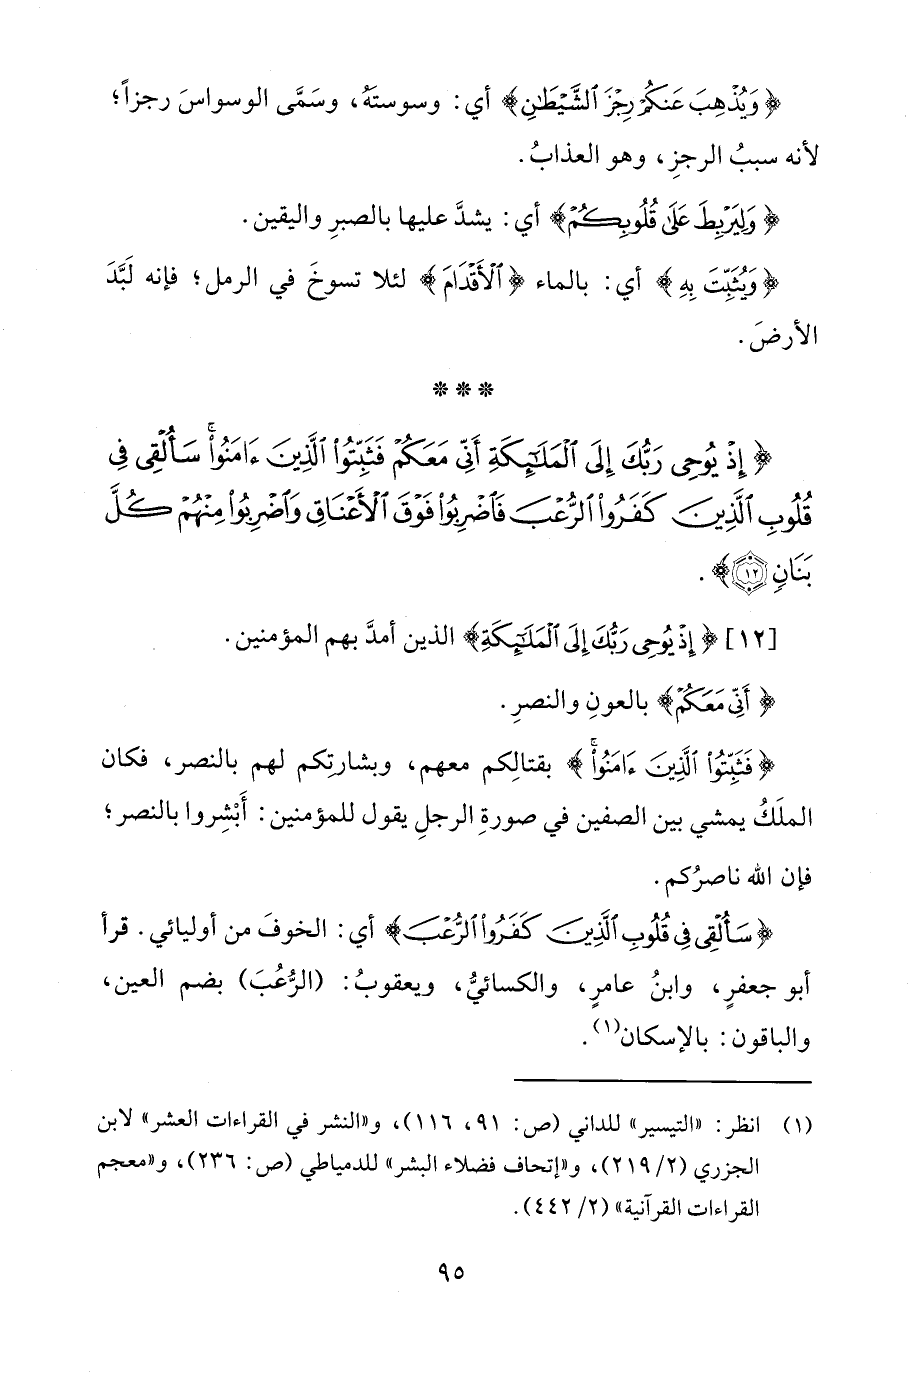 ﴿وَيُذْهِبَ عَنكُمْ رِجْزَ ٱلشَّيْطَٰنِ﴾ أي: وسوستَهُ، وسَمَّى الوسواسَ رجزاً؛
لأنه سببُ الرجزِ، وهو العذابُ.
﴿وَلِيَرْبِطَ عَلَىٰ قُلُوبِكُمْ﴾ أي: يشدَّ عليها بالصبرِ واليقين.
﴿وَيُثَبِّتَ بِهِ﴾ أي: بالماء ﴿ٱلْأَقْدَامَ﴾ لئلا تسوخَ في الرمل؛ فإنه لَبَّدَ
الأرضَ.
***
﴿إِذْ يُوحِى رَبُّكَ إِلَى ٱلْمَلَٰٓئِكَةِ أَنِّى مَعَكُمْ فَثَبِّتُوا۟ ٱلَّذِينَ ءَامَنُوا۟ۚ سَأُلْقِى فِى
قُلُوبِ ٱلَّذِينَ كَفَرُوا۟ ٱلرُّعْبَ فَٱضْرِبُوا۟ فَوْقَ ٱلْأَعْنَاقِ وَٱضْرِبُوا۟ مِنْهُمْ كُلَّ
بَنَانٍ ﴿١٢﴾﴾.
[١٢] ﴿إِذْ يُوحِى رَبُّكَ إِلَى ٱلْمَلَٰٓئِكَةِ﴾ الذين أمدَّ بهم المؤمنين.
﴿أَنِّى مَعَكُمْ﴾ بالعونِ والنصرِ.
﴿فَثَبِّتُوا۟ ٱلَّذِينَ ءَامَنُوا۟ۚ﴾ بقتالِكم معهم، وبشارتِكم لهم بالنصر، فكان
الملَكُ يمشي بين الصفين في صورةِ الرجلِ يقول للمؤمنين: أَبْشِروا بالنصر؛
فإن الله ناصرُكم.
﴿سَأُلْقِى فِى قُلُوبِ ٱلَّذِينَ كَفَرُوا۟ ٱلرُّعْبَ﴾ أي: الخوفَ من أوليائي. قرأ
أبو جعفرٍ، وابنُ عامرٍ، والكسائيُّ، ويعقوبُ: (الرُّعُبَ) بضم العين،
والباقون: بالإسكان(١).
(١) انظر: «التيسير» للداني (ص: ٩١، ١١٦)، و«النشر في القراءات العشر» لابن
الجزري (٢/ ٢١٩)، و«إتحاف فضلاء البشر» للدمياطي (ص: ٢٣٦)، و«معجم
القراءات القرآنية» (٢/ ٤٤٢).
٩٥